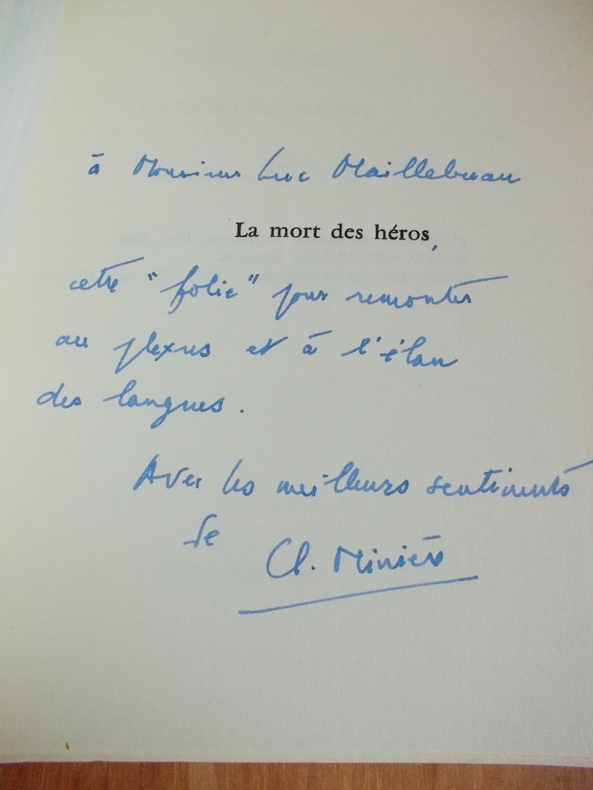 à Monsieur Luc Maillebuau
La mort des héros,
cette "folie" pour remonter
au plexus et à l'élan
des langues.
Avec les meilleurs sentiments
de
Cl. Minière